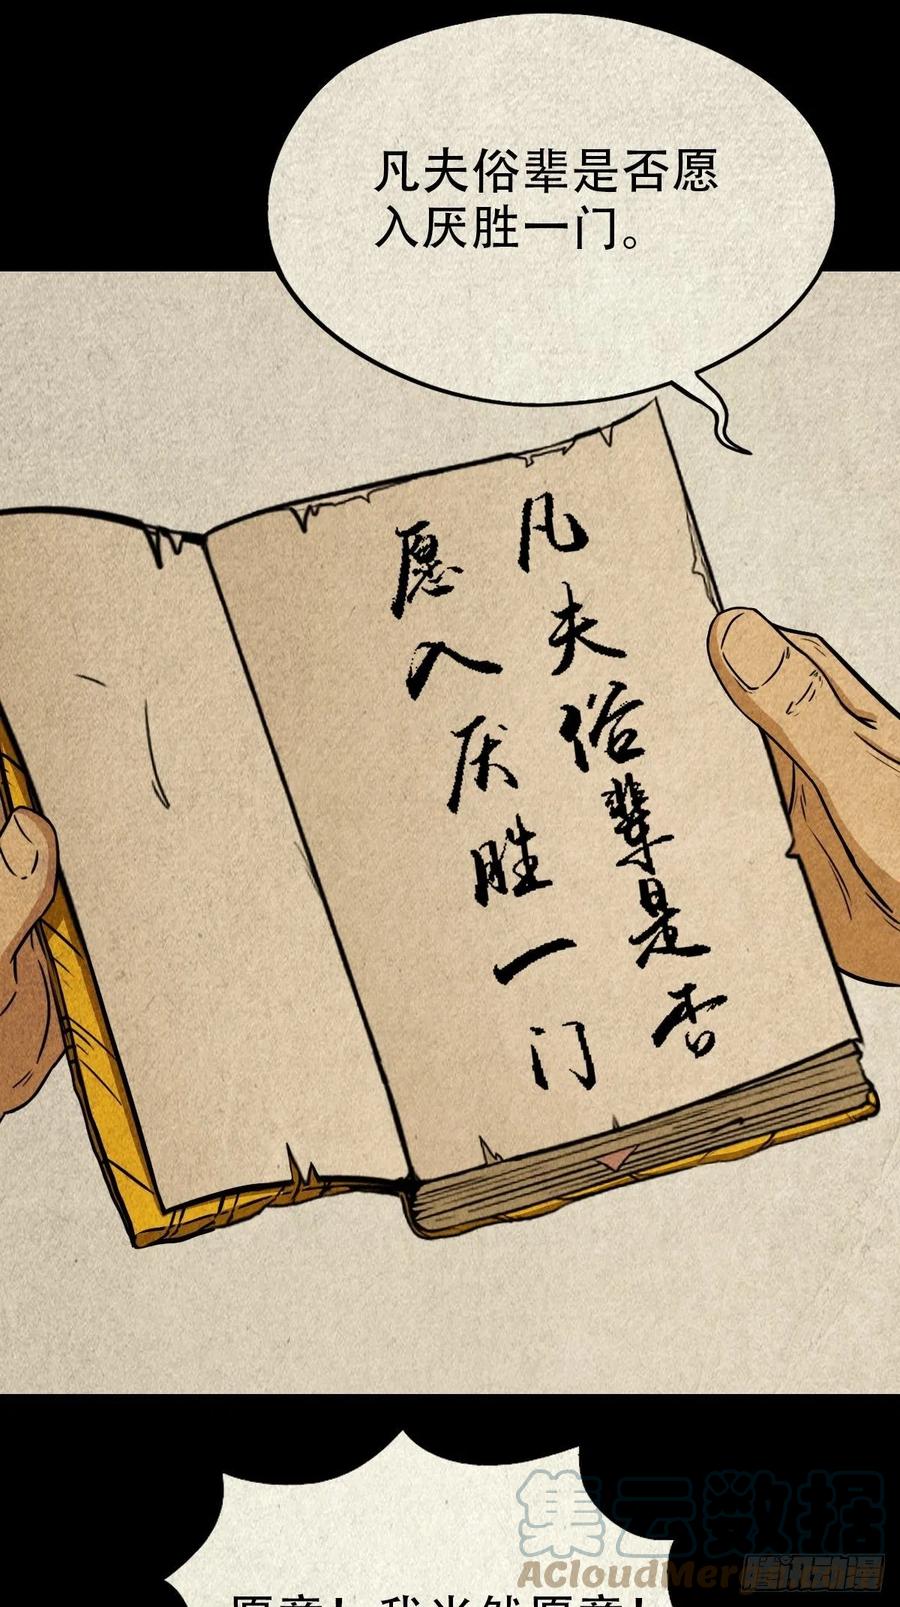 凡夫俗辈是否愿
入厌胜一门。
凡夫俗辈是否
愿入厌胜一门
愿意！我当然愿意！
集云数据
ACloudMerge
腾讯动漫